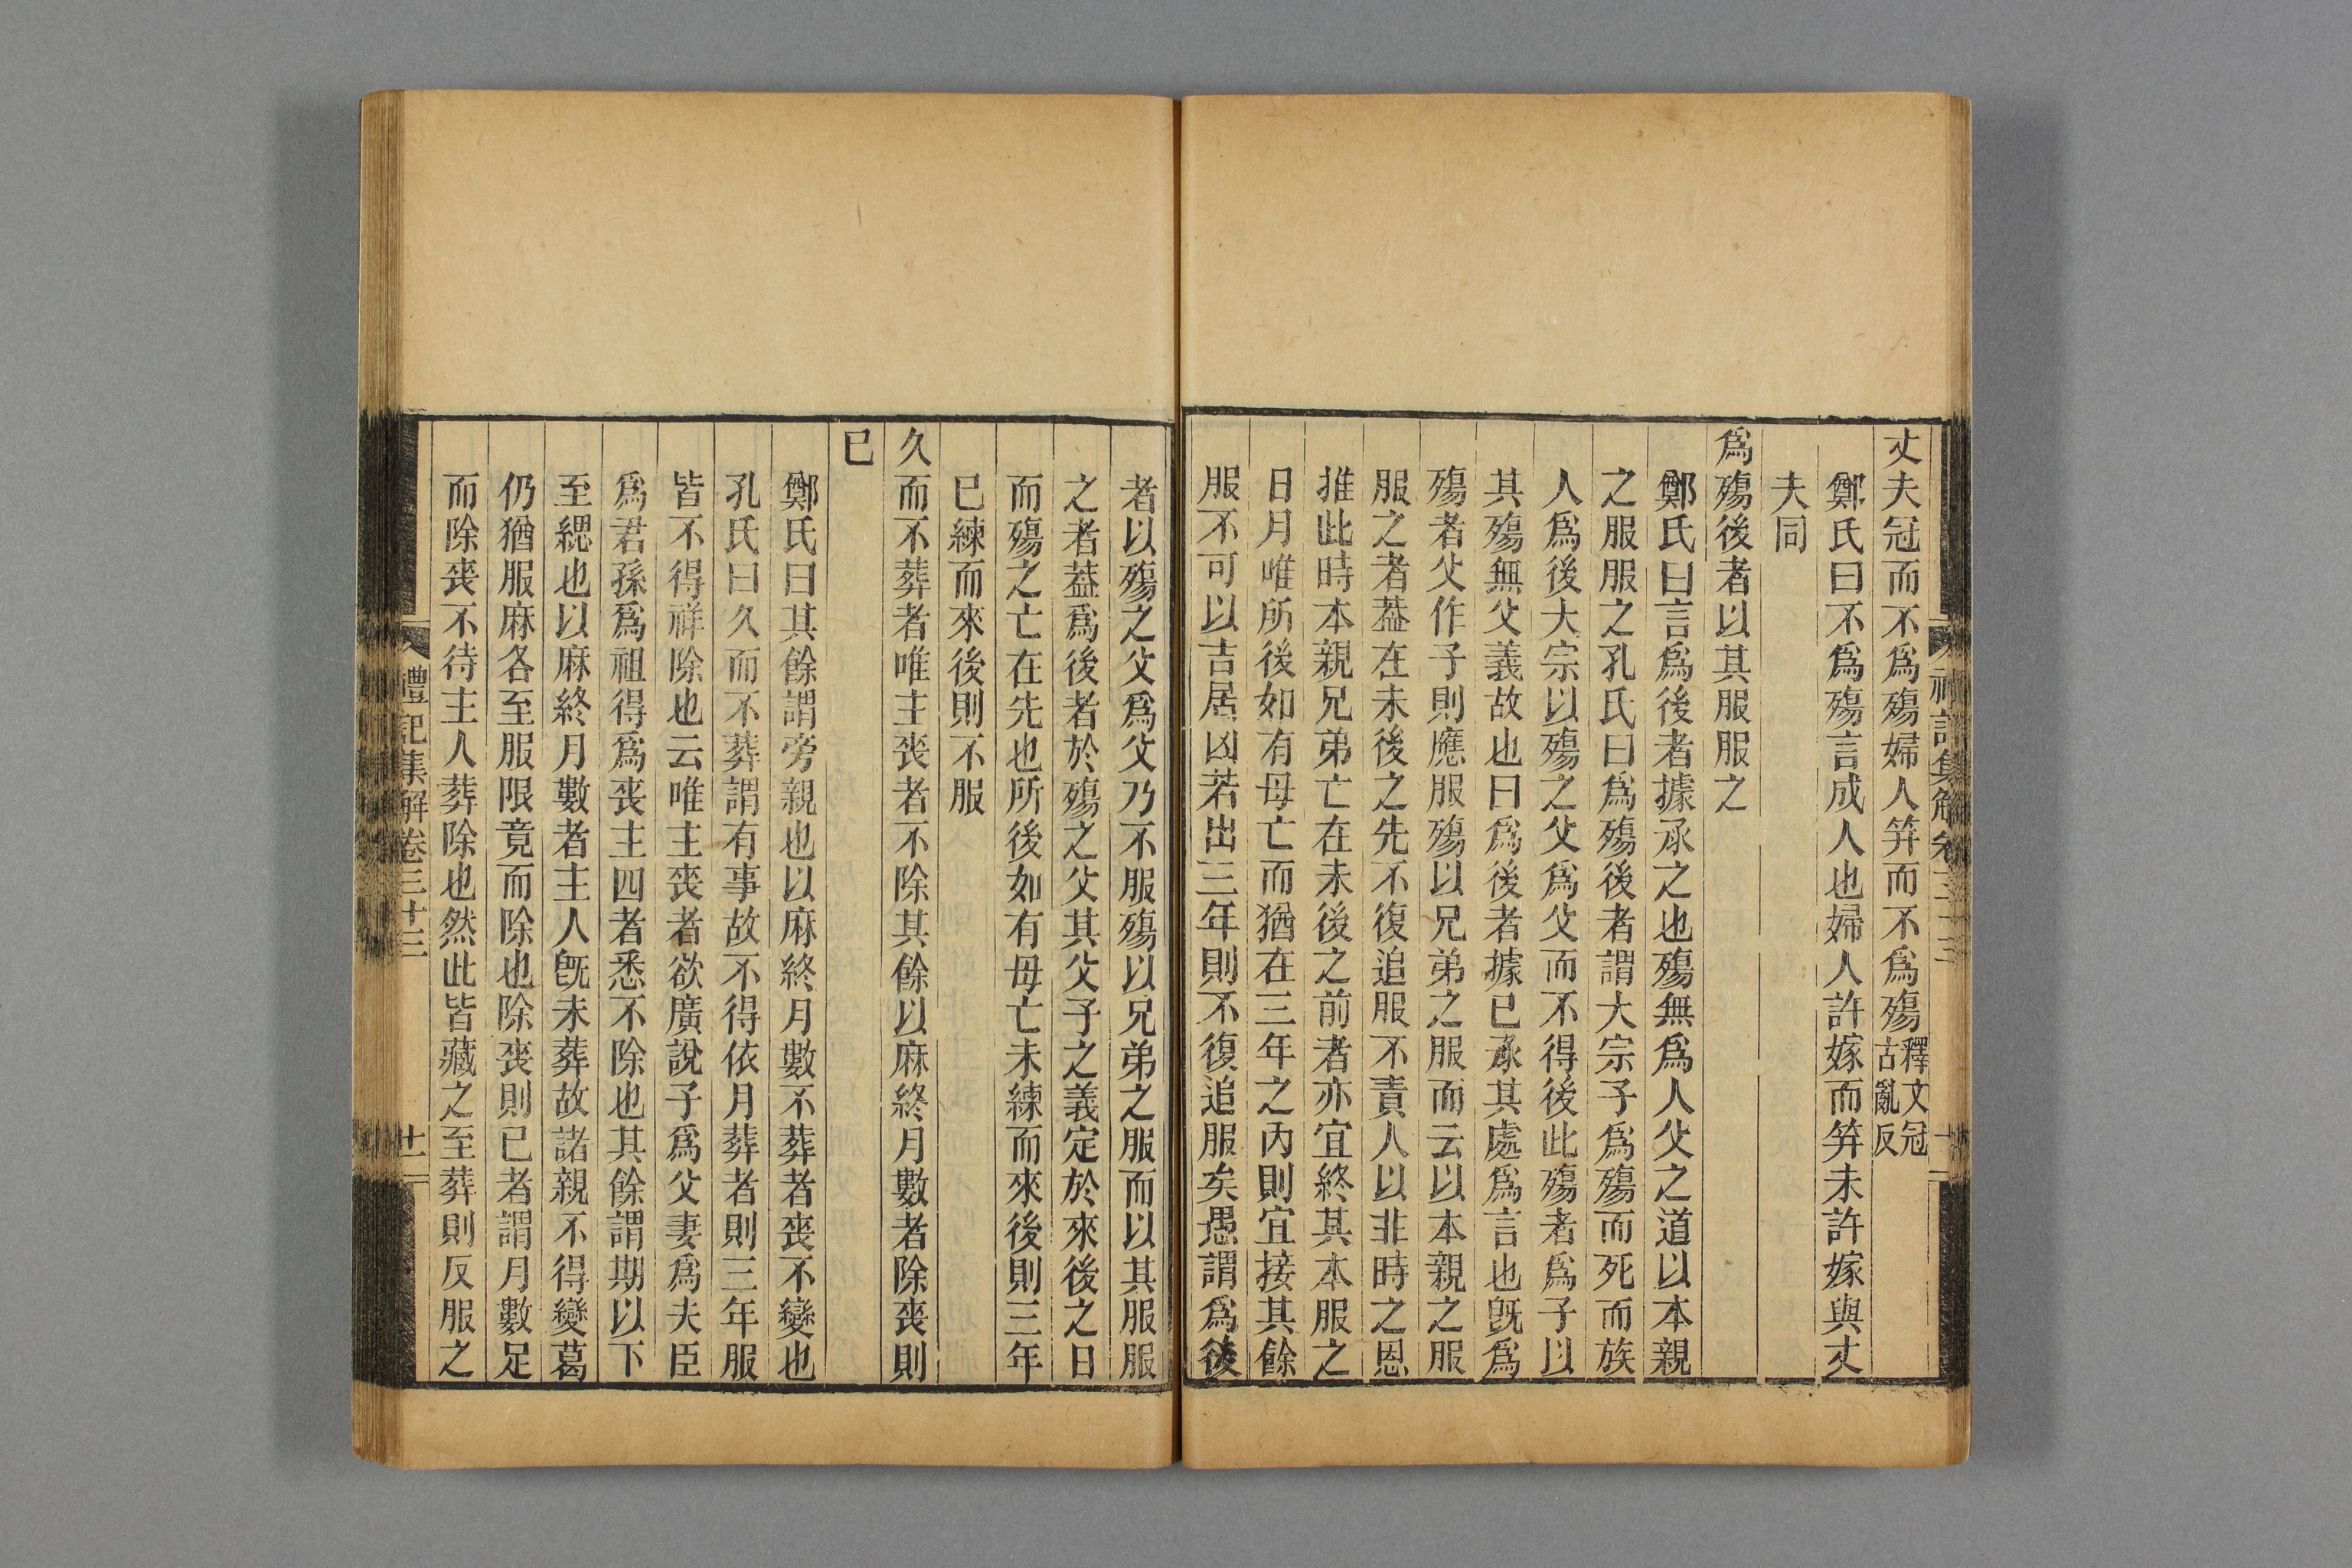 丈夫冠而不爲殤婦人笄而不爲殤釋文冠古亂反
鄭氏曰不爲殤言成人也婦人許嫁而笄未許嫁與丈
夫同
爲殤後者以其服服之
鄭氏曰言爲後者據承之也殤無爲人父之道以本親
之服服之孔氏曰爲殤後者謂大宗子爲殤而死而族
人爲後大宗以殤之父爲父而不得後此殤者爲子以
其殤無父義故也曰爲後者據已承其處爲言也旣爲
殤者父作子則應服殤以兄弟之服而云以本親之服
服之者葢在未後之先不復追服不責人以非時之恩
推此時本親兄弟亡在未後之前者亦宜終其本服之
日月唯所後如有母亡而猶在三年之內則宜接其餘
服不可以吉居凶若出三年則不復追服矣愚謂爲後
者以殤之父爲父乃不服殤以兄弟之服而以其服服
之者葢爲後者於殤之父其父子之義定於來後之日
而殤之亡在先也所後如有母亡未練而來後則三年
已練而來後則不服
久而不葬者唯主喪者不除其餘以麻終月數者除喪則
已
鄭氏曰其餘謂旁親也以麻終月數不葬者喪不變也
孔氏曰久而不葬謂有事故不得依月葬者則三年服
皆不得祥除也云唯主喪者欲廣說子爲父妻爲夫臣
爲君孫爲祖得爲喪主四者悉不除也其餘謂期以下
至緦也以麻終月數者主人旣未葬故諸親不得變葛
仍猶服麻各至服限竟而除也除喪則已者謂月數足
而除喪不待主人葬除也然此皆藏之至葬則反服之
禮記集解卷三十三
十一